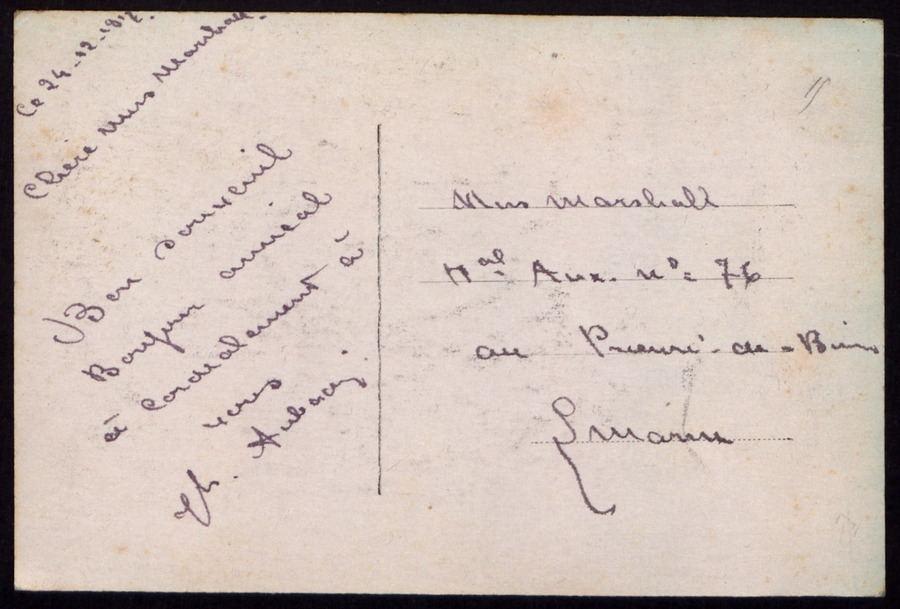 Ce 24-12-1917.
Chère Miss Marshall.
Bon souvenir
Bonjour amical
et Cordialement à
vous
Th.
Miss Marshall
Hal Aux. No= 76
au Prieuré-de-Binson
Marne